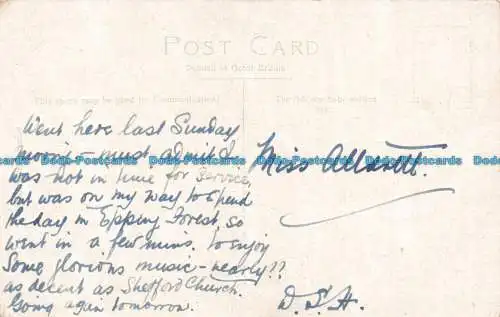 POST CARD
Printed in Great Britain
This space may be used for Communication
The Address to be written
Went here last Sunday
morning - must admit I
was not in time for service,
but was on my way to spend
the day in Epping Forest, so
went in a few mins. to enjoy
Some glorious music - nearly??
as decent as Shefford Church.
Going again tomorrow.
Miss
D.S.H.
Podaks-Cards Podaks-Cards Podaks-Cards Podaks-Cards Podaks-Cards